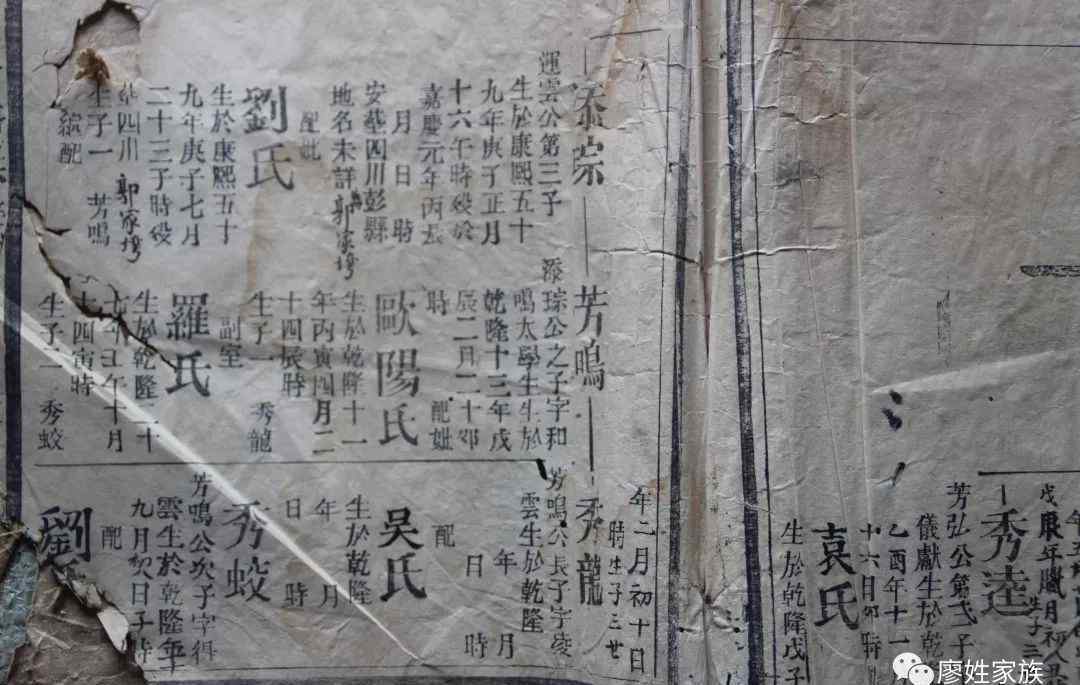 秀逵
芳弘公第弍子
儀獻生於乾
乙酉年十一
十六日卯時
袁氏
生於乾隆戊子
添琮
運雲公第三子
生於康熙五十
九年庚子正月
十六午時歿於
嘉慶元年丙辰
月 日 時
安塟四川彭縣
地名未詳 郭家塆
配妣
劉氏
生於康熙五十
九年庚子七月
二十三子時歿
塟四川 郭家塆
生子一 芳鳴
繼配
芳鳴
添琮公之子字和
鳴太學生生於
乾隆十三年戊
辰二月二十卯
時 配妣
歐陽氏
生於乾隆十一
年丙寅四月二
十四辰時
生子一 秀龍
副室
羅氏
生於乾隆二十
七年壬午十月
十四寅時
生子一 秀蛟
年二月初十日
時生子三世
秀龍
芳鳴公長子字凌
雲生於乾隆
年 月
日 時
配
吳氏
生於乾隆
年 月
日 時
秀蛟
芳鳴公次子字得
雲生於乾隆
九月初日子時
配
劉氏
廖姓家族